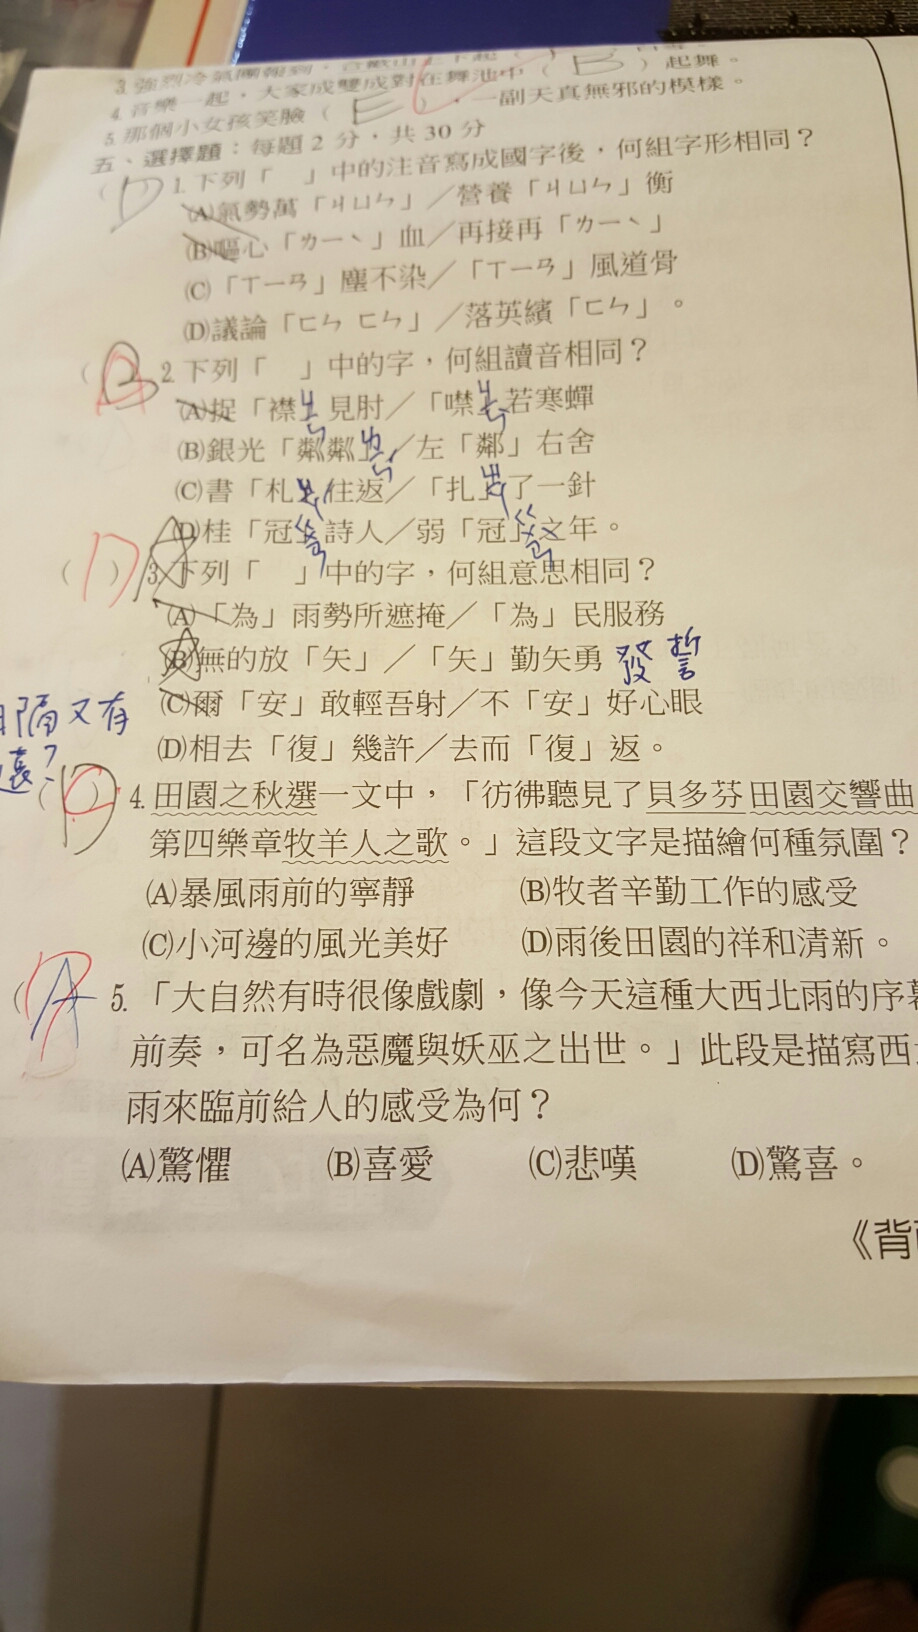 3. 強烈冷氣團報到，合歡山上下起（
4. 音樂一起，大家成雙成對在舞池中（ B ）起舞。
5. 那個小女孩笑臉（ E ），一副天真無邪的模樣。
五、選擇題：每題2分，共30分
( D ) 1. 下列「　」中的注音寫成國字後，何組字形相同？
(A)氣勢萬「ㄐㄩㄣ」／營養「ㄐㄩㄣ」衡
(B)嘔心「ㄌㄧˋ」血／再接再「ㄌㄧˋ」
(C)「ㄒㄧㄢ」塵不染／「ㄒㄧㄢ」風道骨
(D)議論「ㄈㄣ ㄈㄣ」／落英繽「ㄈㄣ」。
( 2. 下列「　」中的字，何組讀音相同？
(A)捉「襟」見肘／「噤」若寒蟬
(B)銀光「粼粼」／左「鄰」右舍
(C)書「札」往返／「扎」了一針
(D)桂「冠」詩人／弱「冠」之年。
( D ) A 3. 下列「　」中的字，何組意思相同？
(A)「為」雨勢所遮掩／「為」民服務
(B)無的放「矢」／「矢」勤矢勇 發誓
(C)爾「安」敢輕吾射／不「安」好心眼
隔又有
(D)相去「復」幾許／去而「復」返。
遠？
4. 田園之秋選一文中，「彷彿聽見了貝多芬田園交響曲
第四樂章牧羊人之歌。」這段文字是描繪何種氛圍？
(A)暴風雨前的寧靜 (B)牧者辛勤工作的感受
(C)小河邊的風光美好 (D)雨後田園的祥和清新。
( A 5. 「大自然有時很像戲劇，像今天這種大西北雨的序幕
前奏，可名為惡魔與妖巫之出世。」此段是描寫西
雨來臨前給人的感受為何？
(A)驚懼 (B)喜愛 (C)悲嘆 (D)驚喜。
《背